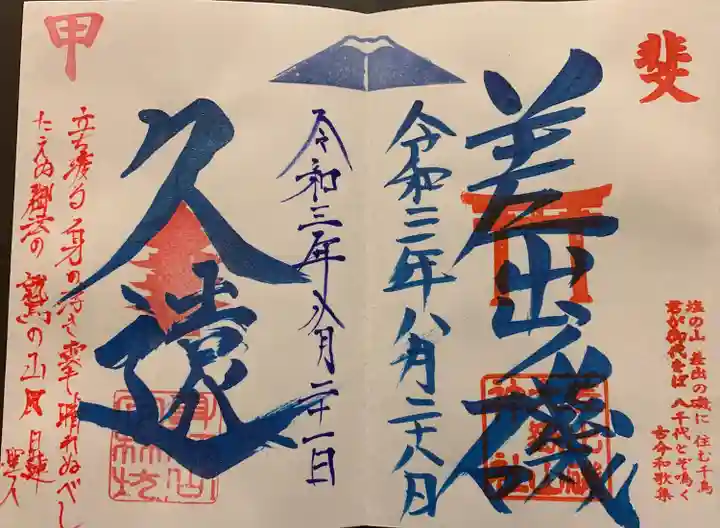 斐
差出ノ磯
塩の山 差出の磯に 住む千鳥
君が御代をば 八千代とぞ鳴く
古今和歌集
令和三年八月二十八日
令和三年八月二十一日
久遠
甲
立ち渡る 身の浮き雲も 晴れぬべし
たえぬ御法の 鷲の山風 日蓮
聖人